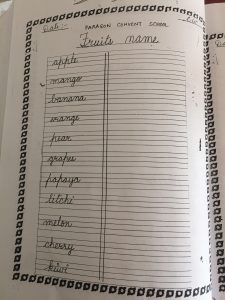 Date:-
PARAGON CONVENT SCHOOL
Fruits name
apple
mango
banana
orange
pear
grapes
papaya
litchi
melon
cherry
kiwi